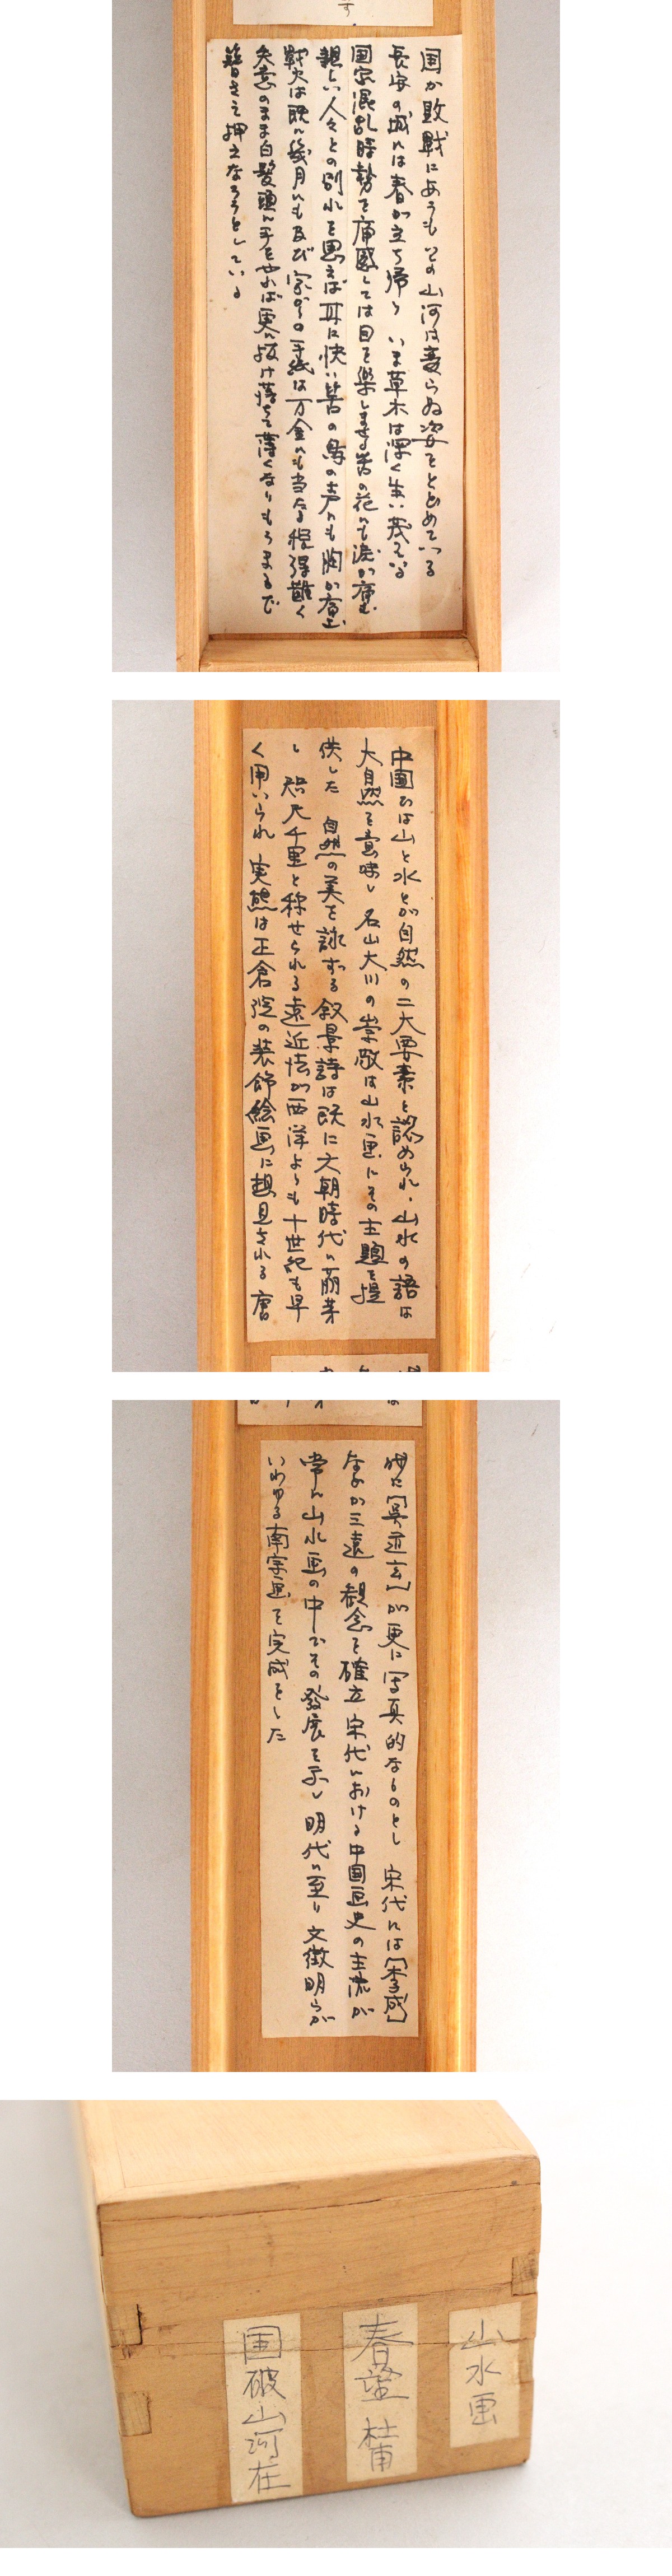 す
国が敗戦にあうもその山河は変らぬ姿をとどめている
長安の城には春が立ち帰り いま草木は深く生い茂ている
国家混乱時勢を痛感しては目を楽しませる昔の花にも涙が痛む
親しい人々との別れを思えば耳に快い昔の鳥の声にも胸が痛む
戦火は既に幾月にも及び家からの手紙は万金にも当る程得難く
失意のまま白髪頭に手をやれば更に抜け落ちて薄くなりもうまるで
簪さえ押えなそうとしている
中国では山と水とが自然の二大要素と認められ、山水の語は
大自然を意味し 名山大川の崇敬は山水画にその主題を提
供した 自然の美を詠ずる叙景詩は既に六朝時代に萠芽
し 咫尺千里と称せられる遠近法が西洋よりも十世紀も早
く用いられ 実態は正倉院の装飾絵画に想見される 唐
時に[呉道玄]が更に写真的なものとし 宋代には[李成]
などが三遠の観念を確立 宋代における中国画史の主流が
常に山水画の中でその発展を示し 明代に至り 文徴明らが
いわゆる南宋画を完成をした
山水画
春望 杜甫
国破山河在